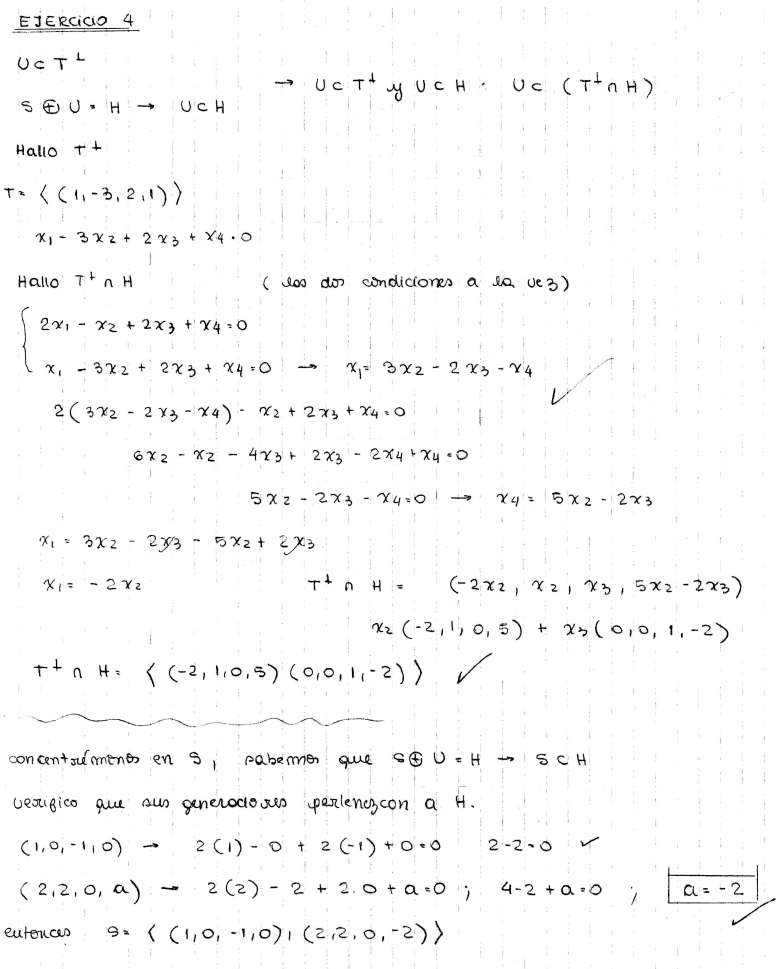 EJERCICIO 4
U ⊂ T⊥
S ⊕ U = H → U ⊂ H → U ⊂ T⊥ y U ⊂ H · U ⊂ (T⊥ ∩ H)
Hallo T⊥
T = ⟨ (1, -3, 2, 1) ⟩
x₁ - 3x₂ + 2x₃ + x₄ = 0
Hallo T⊥ ∩ H (las dos condiciones a la vez)
2x₁ - x₂ + 2x₃ + x₄ = 0
x₁ - 3x₂ + 2x₃ + x₄ = 0 → x₁ = 3x₂ - 2x₃ - x₄
2(3x₂ - 2x₃ - x₄) - x₂ + 2x₃ + x₄ = 0 ✓
6x₂ - x₂ - 4x₃ + 2x₃ - 2x₄ + x₄ = 0
5x₂ - 2x₃ - x₄ = 0 → x₄ = 5x₂ - 2x₃
x₁ = 3x₂ - 2x₃ - 5x₂ + 2x₃
x₁ = -2x₂ T⊥ ∩ H = (-2x₂, x₂, x₃, 5x₂ - 2x₃)
x₂(-2, 1, 0, 5) + x₃(0, 0, 1, -2)
T⊥ ∩ H = ⟨ (-2, 1, 0, 5) (0, 0, 1, -2) ⟩ ✓
concentrémonos en S, sabemos que S ⊕ U = H → S ⊂ H
verifico que sus generadores pertenezcan a H.
(1, 0, -1, 0) → 2(1) - 0 + 2(-1) + 0 = 0 2 - 2 = 0 ✓
(2, 2, 0, a) → 2(2) - 2 + 2.0 + a = 0 ; 4 - 2 + a = 0 ; a = -2 ✓
entonces S = ⟨ (1, 0, -1, 0), (2, 2, 0, -2) ⟩